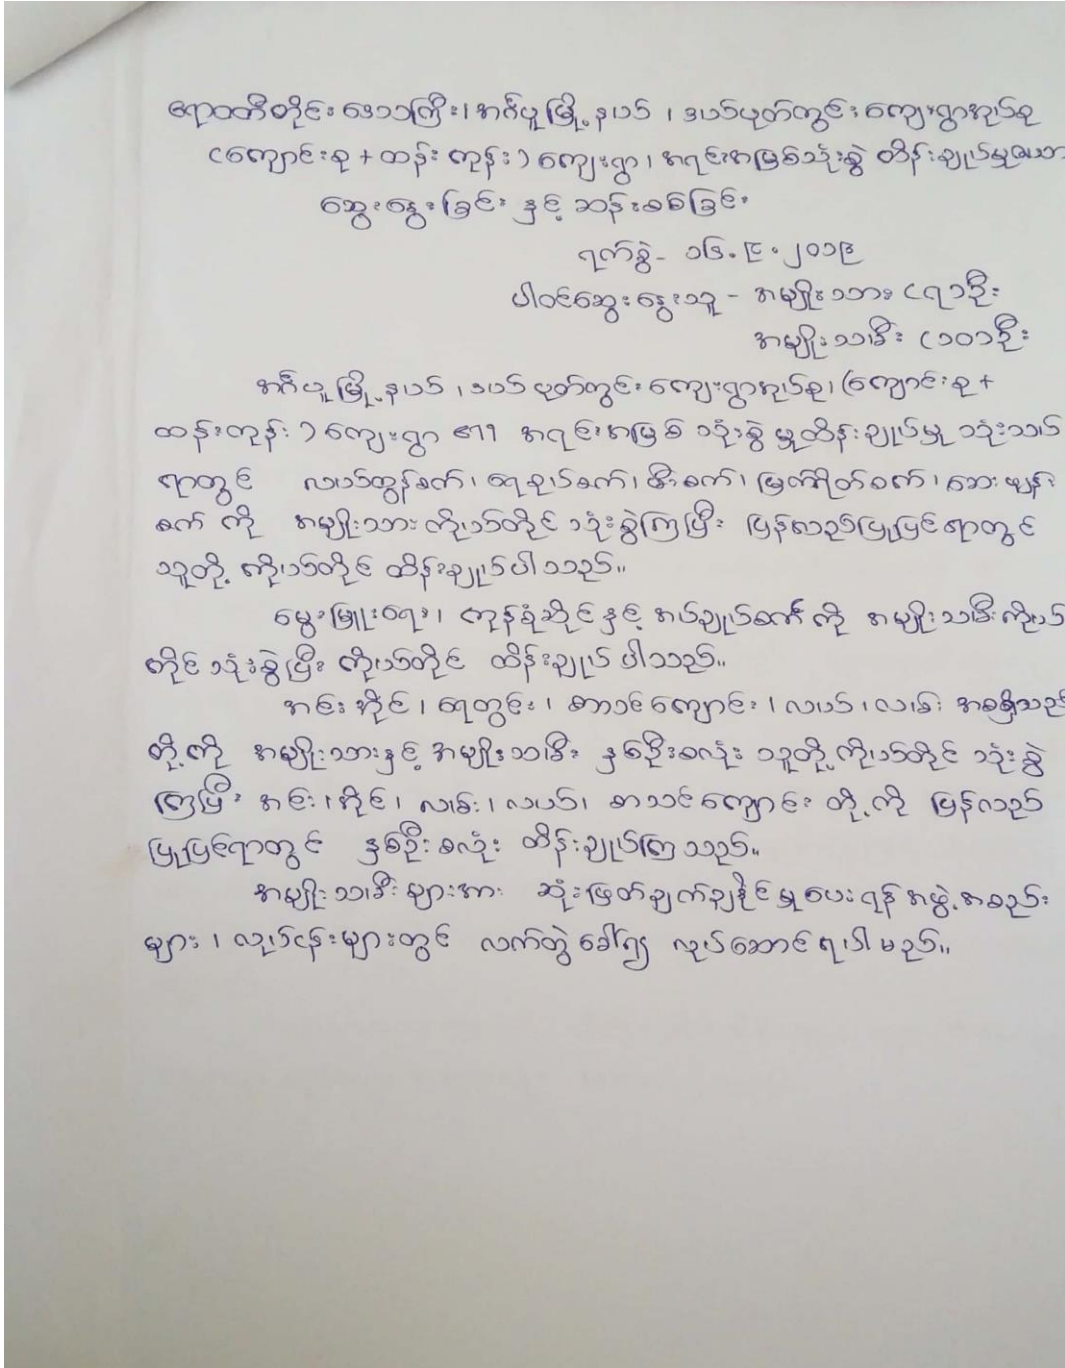 ဧရာဝတီတိုင်းဒေသကြီး၊ အင်္ဂပူမြို့နယ် ၊ ဒယ်ပုတ်ကွင်း ကျေးရွာအုပ်စု
(ကျောင်းစု + ထန်းကုန်း) ကျေးရွာ၊ အရင်းအမြစ်သုံးစွဲ ထိန်းချုပ်မှု
ဆွေးနွေးခြင်း နှင့် ဆန်းစစ်ခြင်း
ရက်စွဲ - ၁၆.၉.၂၀၁၉
ပါဝင်ဆွေးနွေးသူ - အမျိုးသား (၇)ဦး
အမျိုးသမီး (၁၀)ဦး
အင်္ဂပူမြို့နယ် ၊ ဒယ်ပုတ်ကွင်း ကျေးရွာအုပ်စု၊ (ကျောင်းစု +
ထန်းကုန်း) ကျေးရွာ ၏ အရင်းအမြစ် သုံးစွဲမှုထိန်းချုပ်မှု သုံးသပ်
ရာတွင် လယ်ထွန်စက်၊ ရေစုပ်စက်၊ မီးစက်၊ မြက်ရိတ်စက်၊ ဆေးဖျန်း
စက် ကို အမျိုးသား ကိုယ်တိုင် သုံးစွဲကြပြီး ပြန်လည်ပြုပြင်ရာတွင်
သူတို့ ကိုယ်တိုင် ထိန်းချုပ်ပါသည်။
မွေးမြူရေး၊ ကုန်စုံဆိုင်နှင့် အပ်ချုပ်စက်ကို အမျိုးသမီးကိုယ်
တိုင် သုံးစွဲပြီး ကိုယ်တိုင် ထိန်းချုပ်ပါသည်။
အင်းအိုင်၊ ရေတွင်း၊ စာသင်ကျောင်း၊ လယ်၊ လမ်း အစရှိသည်
တို့ကို အမျိုးသားနှင့် အမျိုးသမီး နှစ်ဦးစလုံး သူတို့ကိုယ်တိုင် သုံးစွဲ
ကြပြီး အင်း၊ အိုင်၊ လမ်း၊ လယ်၊ စာသင်ကျောင်း တို့ကို ပြန်လည်
ပြုပြင်ရာတွင် နှစ်ဦးစလုံး ထိန်းချုပ်ကြသည်။
အမျိုးသမီးများအား ဆုံးဖြတ်ချက်ချနိုင်မှုပေးရန် အဖွဲ့အစည်း
များ၊ လုပ်ငန်းများတွင် လက်တွဲခေါ်၍ လုပ်ဆောင်ရပါမည်။